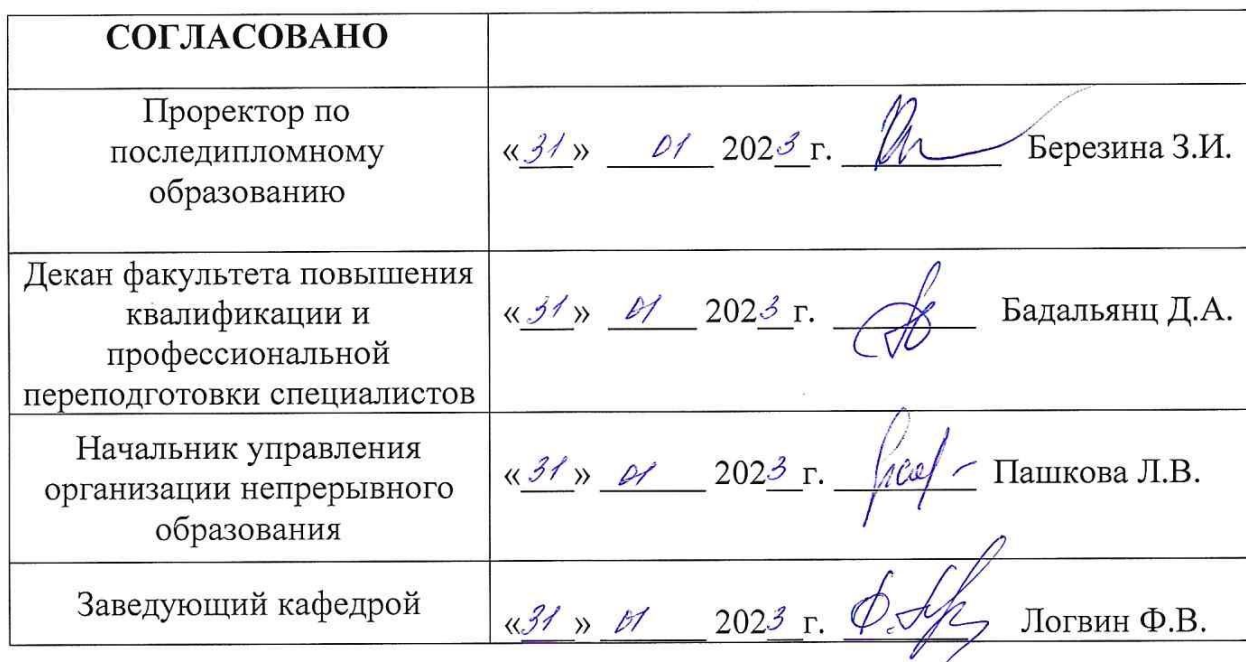 СОГЛАСОВАНО
Проректор по
последипломному
образованию
«31» 01 2023 г. Березина З.И.
Декан факультета повышения
квалификации и
профессиональной
переподготовки специалистов
«31» 01 2023 г. Бадальянц Д.А.
Начальник управления
организации непрерывного
образования
«31» 01 2023 г. Пашкова Л.В.
Заведующий кафедрой
«31» 01 2023 г. Логвин Ф.В.